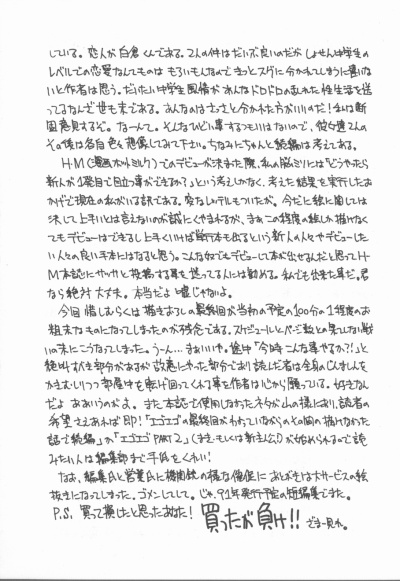 している。恋人が白倉くんである。2人の件はだいぶ良いのだがしょせん中学生の
レベルでの恋愛なんてものはもろいもんなのできっとスグに分かれてしまうに違いな
いと作者は思う。だいたい中学生風情があんなドロドロの乱れた性生活を送
ってるなんて世も末である。あんなのはさっさと分かれた方がいいのだ!私は断
固意見するぞ。なーんて。そんなひどい事するつもりはないので、彼女達2人の
その後は各自色々想像してみて下さい。ちなみにちゃんと続編は考えてある。
HM(漫画ホットミルク)でのデビューが決まった際、私の脳ミソには「どうやったら
新人が1発目で目立つ事ができるか?」という考えしかなく、考えた結果を実行したお
かげで現在の私がいる訳である。変なレッテルもついたが。今だと絵に関しては
決して上手いとは言えないのが誠にくやまれるが、まぁこの程度の絵しか描けなく
てもデビューはできるし上手くいけば単行本も出るという新人の人々やデビューした
い人々の良い手本にはなると思う。こんな奴でもデビューして本が出せるんだと思ってH
M本誌にササッと投稿する事を迷ってる人には勧める。私でも出来た事だ。君
なら絶対大丈夫。本当だよ嘘じゃないよ。
今回惜しむらくは描きおろしの最終回が当初の予定の100分の1程度のお
粗末なものになってしまったのが残念である。スケジュールとページ数との果てしない戦
いの末にこうなってしまった。うーん…まぁいいや。途中「今時こんな事やるか?!」と
絶叫ものの部分があるが故意にやった部分であり読んだ者は全身のじましんを
かきむしりつつ部屋中を駆け回ってくれる事を作者は心から願っている。好きなん
だよああいうのがよ。また本誌で使用しなかったネタが山の様にあり、読者の
希望さえあれば即!「エゴエゴの最終回がおわっていながらその間の描けなかった
話で続編」か「エゴエゴPART2」(まき・もしくは新主人公)が始められるので読
みたい人は編集部まで手氏をくれい!
なお、編集氏と営業氏に機関銃の様な催促にあとがきは大サービスの絵
抜きになってしまった。ゴメンしてして。じゃ、91年発行予定の短編集でまた。
P.S. 買って損したと思ったあなた! 買ったが負け!! ざまー見れ。